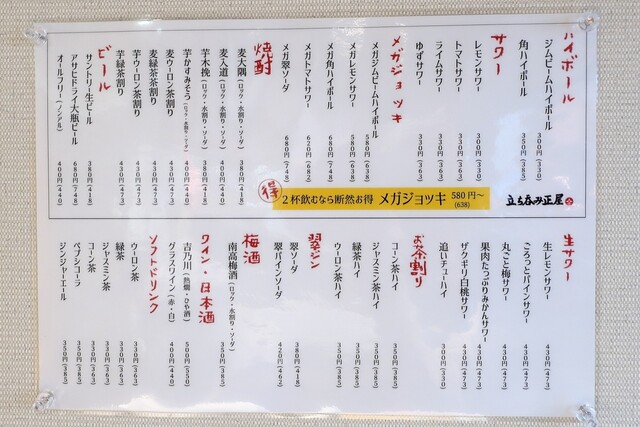 ハイボール
ジムビームハイボール 300円(330)
角ハイボール 350円(385)
サワー
レモンサワー 300円(330)
トマトサワー 330円(363)
ライムサワー 330円(363)
ゆずサワー 330円(363)
メガジョッキ
メガジムビームハイボール 580円(638)
メガレモンサワー 580円(638)
メガ角ハイボール 680円(748)
メガトマトサワー 620円(682)
メガ翠ソーダ 680円(748)
焼酎
麦大隅(ロック・水割り・ソーダ) 380円(418)
麦入道(ロック・水割り・ソーダ) 400円(440)
芋木挽(ロック・水割り・ソーダ) 380円(418)
芋かすみそう(ロック・水割り・ソーダ) 400円(440)
麦ウーロン茶割り 430円(473)
麦緑茶茶割り 430円(473)
芋ウーロン茶割り 430円(473)
芋緑茶割り 430円(473)
ビール
サントリー生ビール 380円(418)
アサヒドライ大瓶ビール 680円(748)
オールフリー(ノンアル) 400円(440)
得 2杯飲むなら断然お得 メガジョッキ 580円〜(638)
立ち呑み正屋
生サワー
生レモンサワー 430円(473)
ごろっとパインサワー 430円(473)
丸ごと梅サワー 430円(473)
果肉たっぷりみかんサワー 430円(473)
ザクギリ白桃サワー 430円(473)
追いチューハイ 300円(330)
お茶割り
コーン茶ハイ 350円(385)
ジャスミン茶ハイ 350円(385)
緑茶ハイ 350円(385)
ウーロン茶ハイ 350円(385)
翠ジン
翠ソーダ 380円(418)
翠パインソーダ 420円(462)
梅酒
南高梅酒(ロック・水割り・ソーダ) 350円(385)
ワイン・日本酒
吉乃川(熱燗・ひや酒) 500円(550)
グラスワイン(赤・白) 400円(440)
ソフトドリンク
ウーロン茶 330円(363)
緑茶 330円(363)
ジャスミン茶 330円(363)
コーン茶 330円(363)
ペプシコーラ 350円(385)
ジンジャーエール 350円(385)